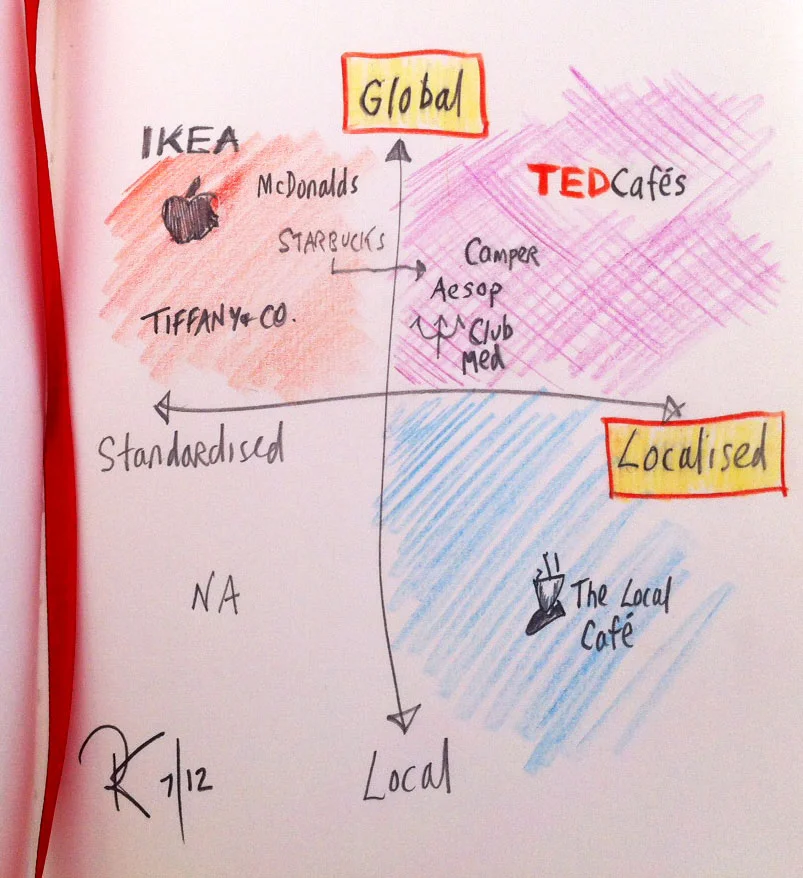 Global
IKEA
McDonalds
TEDCafés
STARBUCKS
Camper
Aesop
TIFFANY & CO.
Club
Med
Standardised
Localised
NA
The Local
Café
RK 7/12
Local